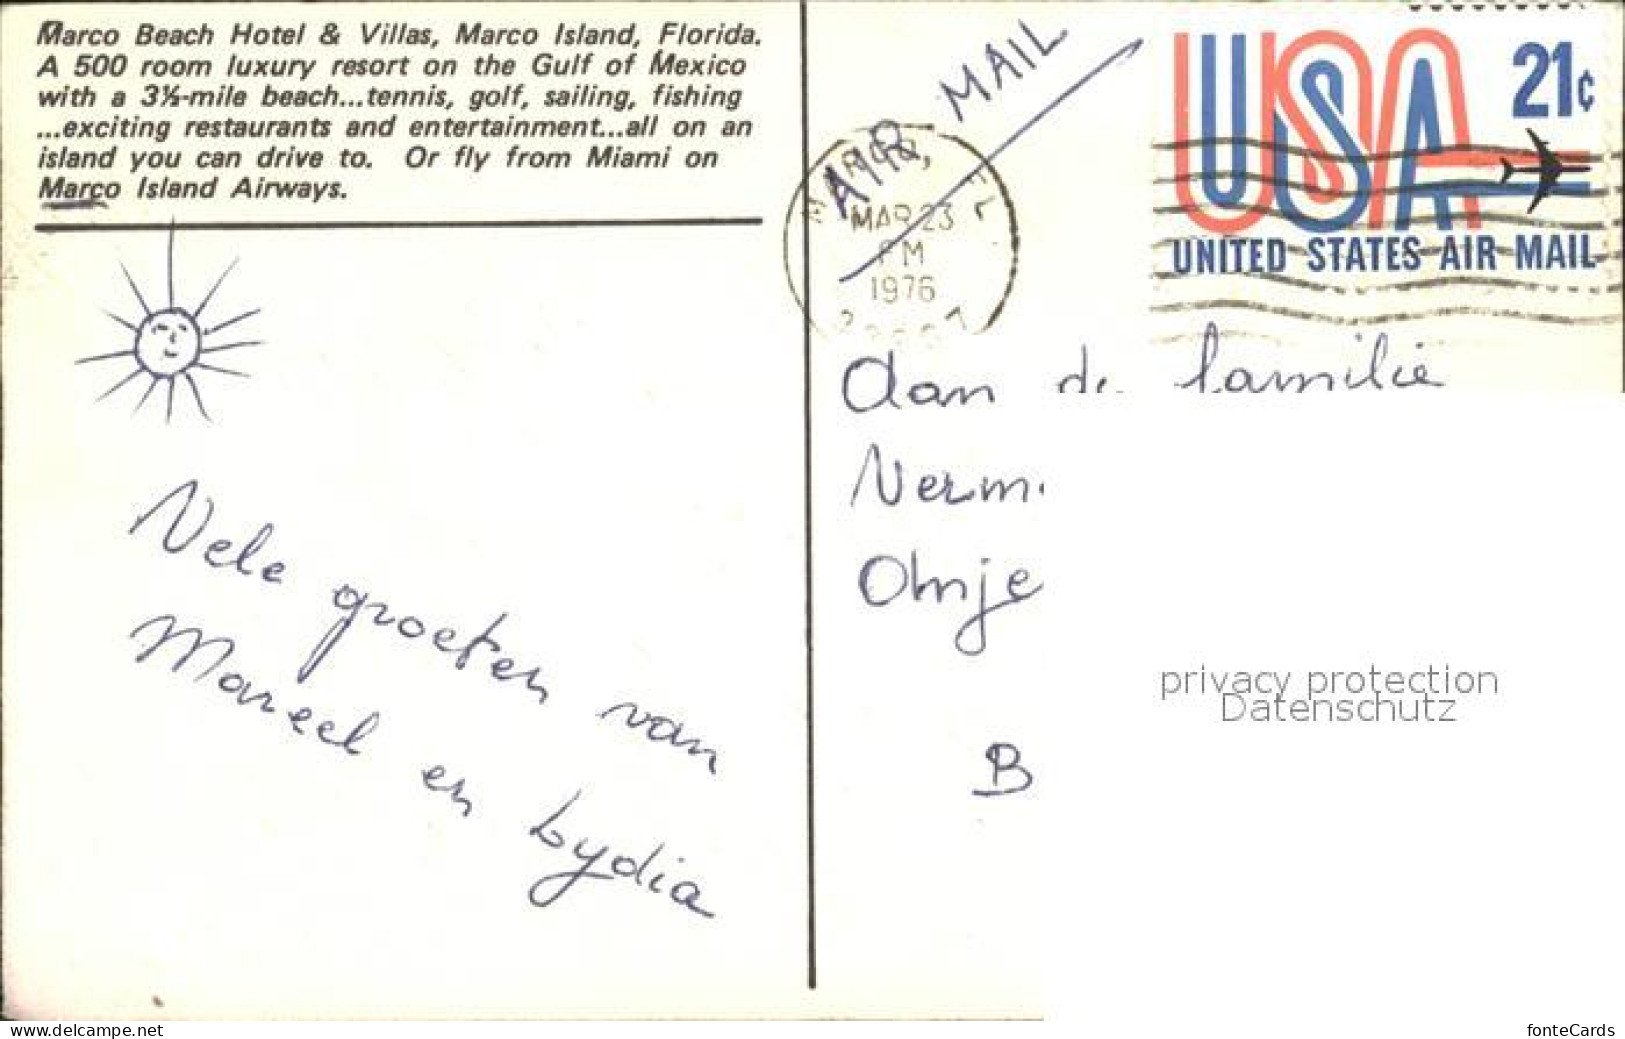 Marco Beach Hotel & Villas, Marco Island, Florida.
A 500 room luxury resort on the Gulf of Mexico
with a 3½-mile beach...tennis, golf, sailing, fishing
...exciting restaurants and entertainment...all on an
island you can drive to. Or fly from Miami on
Marco Island Airways.
Vele groeten van
Marcel en Lydia
AIR MAIL
MARCO, FL
MAR 23
PM
1976
USA 21c
UNITED STATES AIR MAIL
Aan de familie
B
privacy protection
Datenschutz
www.delcampe.net
fonteCards